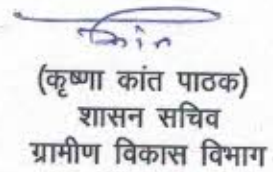 (कृष्णा कांत पाठक)
शासन सचिव
ग्रामीण विकास विभाग